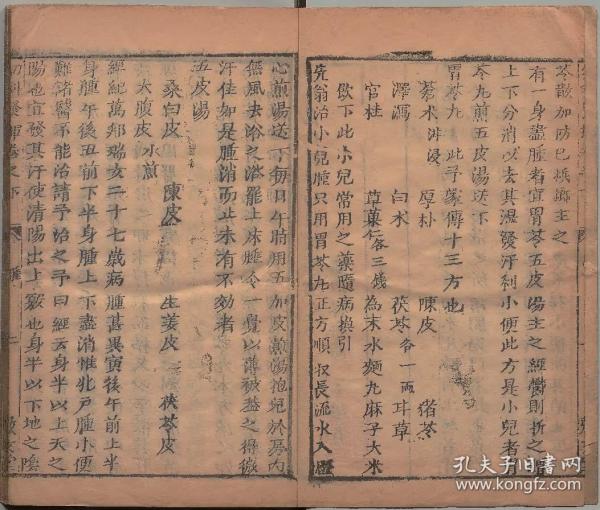 苓散加防巳檳榔主之
有一身盡腫者宜胃苓五皮湯主之經鬱則折之
上下分消以去其濕發汗利小便此方是小兒者
苓丸煎五皮湯送下
胃苓丸 此予家傳十三方也
蒼朮泔浸 厚朴 陳皮 猪苓
澤瀉 白朮 茯苓各一兩 甘草
官桂 草菓仁各三錢 為末水麵丸麻子大米
飲下此小兒常用之藥隨病換引
先翁治小兒腫只用胃苓丸正方順取長流水入
心煎湯送下每日午時用五加皮煎湯抱兒於房内
無風去浴之浴罷上床睡令一覺以薄被蓋之得微
汗佳如是腫消而止未有不効者
五皮湯
桑白皮 陳皮 生姜皮 茯苓皮
大腹皮 水煎
經紀萬邦瑞亥二十七歲病腫甚異寅後午前上半
身腫午後丑前下半身腫上下盡消惟外腫小便
難諸醫不能治請予治之予曰經云身半以上天之
陽也宜發其汗使清陽出上竅也身半以下地之陰
幼科發揮卷之下
孔夫子旧書网
www.kongfz.com